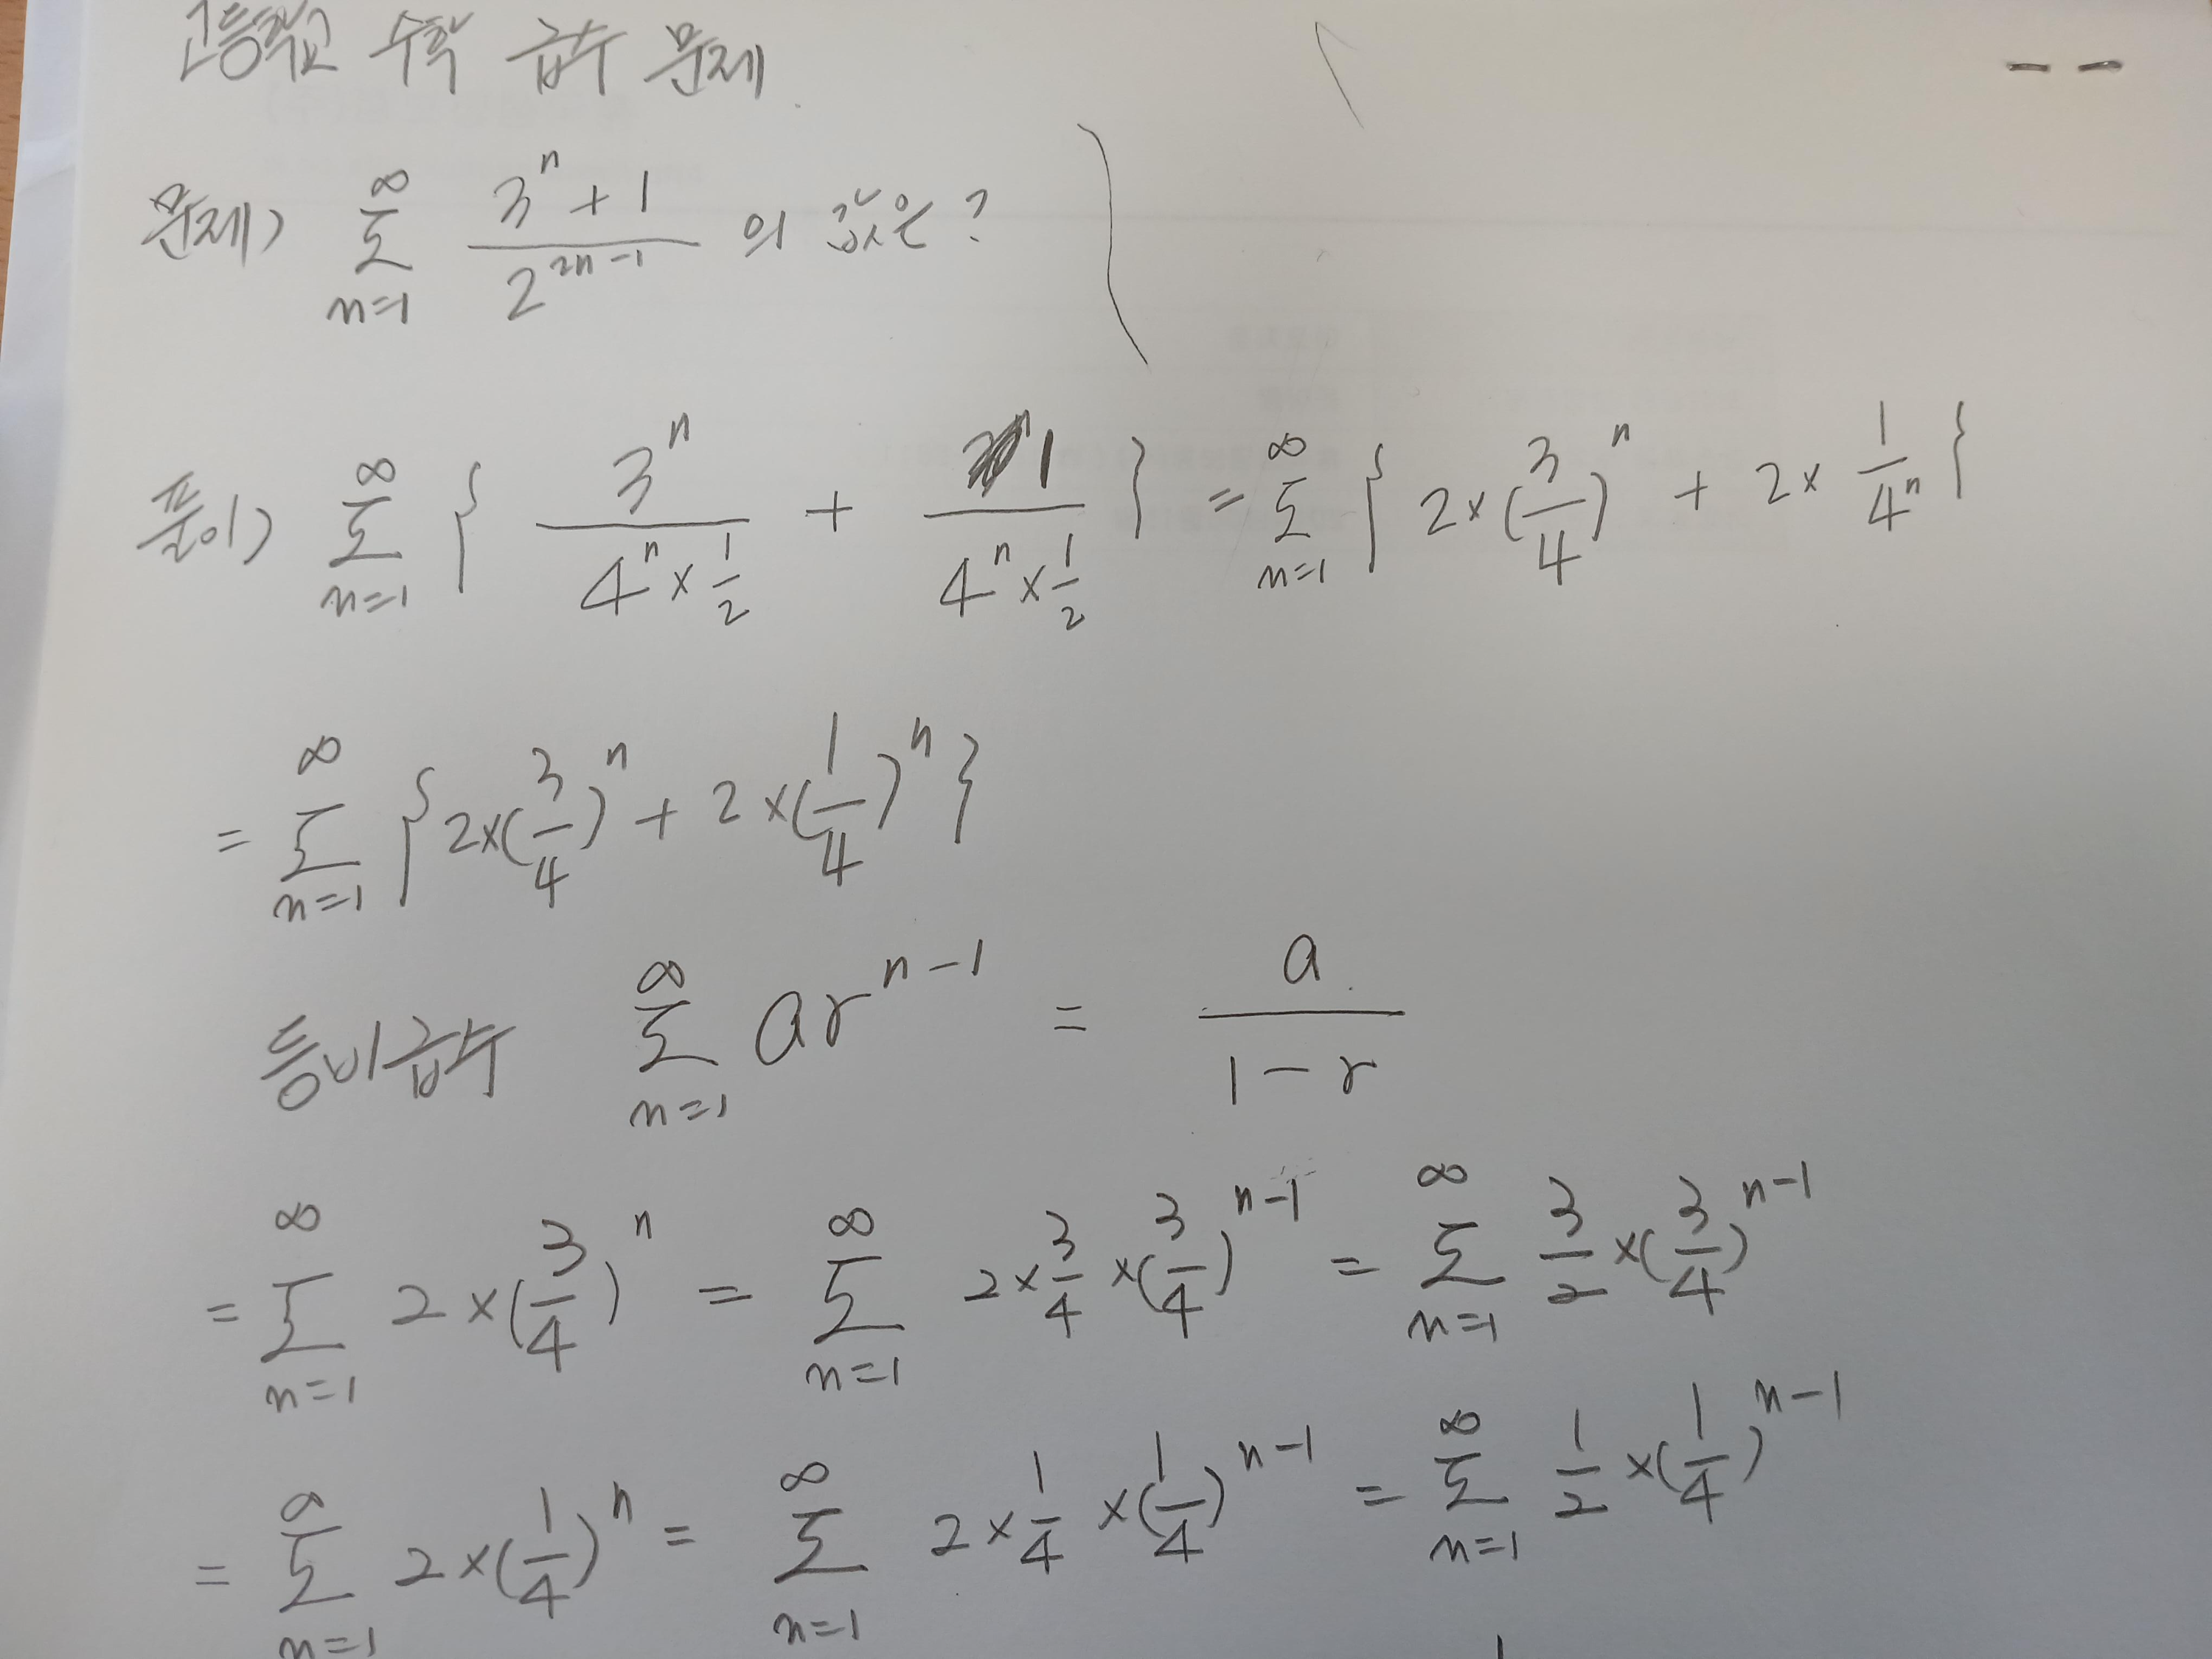 고등학교 수학 급수 문제
문제) ∞ Σ n=1 (3^n + 1) / 2^(2n-1) 의 값은?
풀이) ∞ Σ n=1 { 3^n / (4^n × 1/2) + 1 / (4^n × 1/2) } = ∞ Σ n=1 { 2×(3/4)^n + 2× 1/4^n }
= ∞ Σ n=1 { 2×(3/4)^n + 2×(1/4)^n }
등비급수 ∞ Σ n=1 ar^(n-1) = a / (1-r)
= ∞ Σ n=1 2×(3/4)^n = ∞ Σ n=1 2×3/4×(3/4)^(n-1) = ∞ Σ n=1 3/2×(3/4)^(n-1)
= ∞ Σ n=1 2×(1/4)^n = ∞ Σ n=1 2×1/4×(1/4)^(n-1) = ∞ Σ n=1 1/2×(1/4)^(n-1)